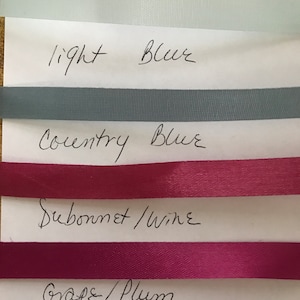 light Blue
Country Blue
Dubonnet/Wine
Grape/Plum